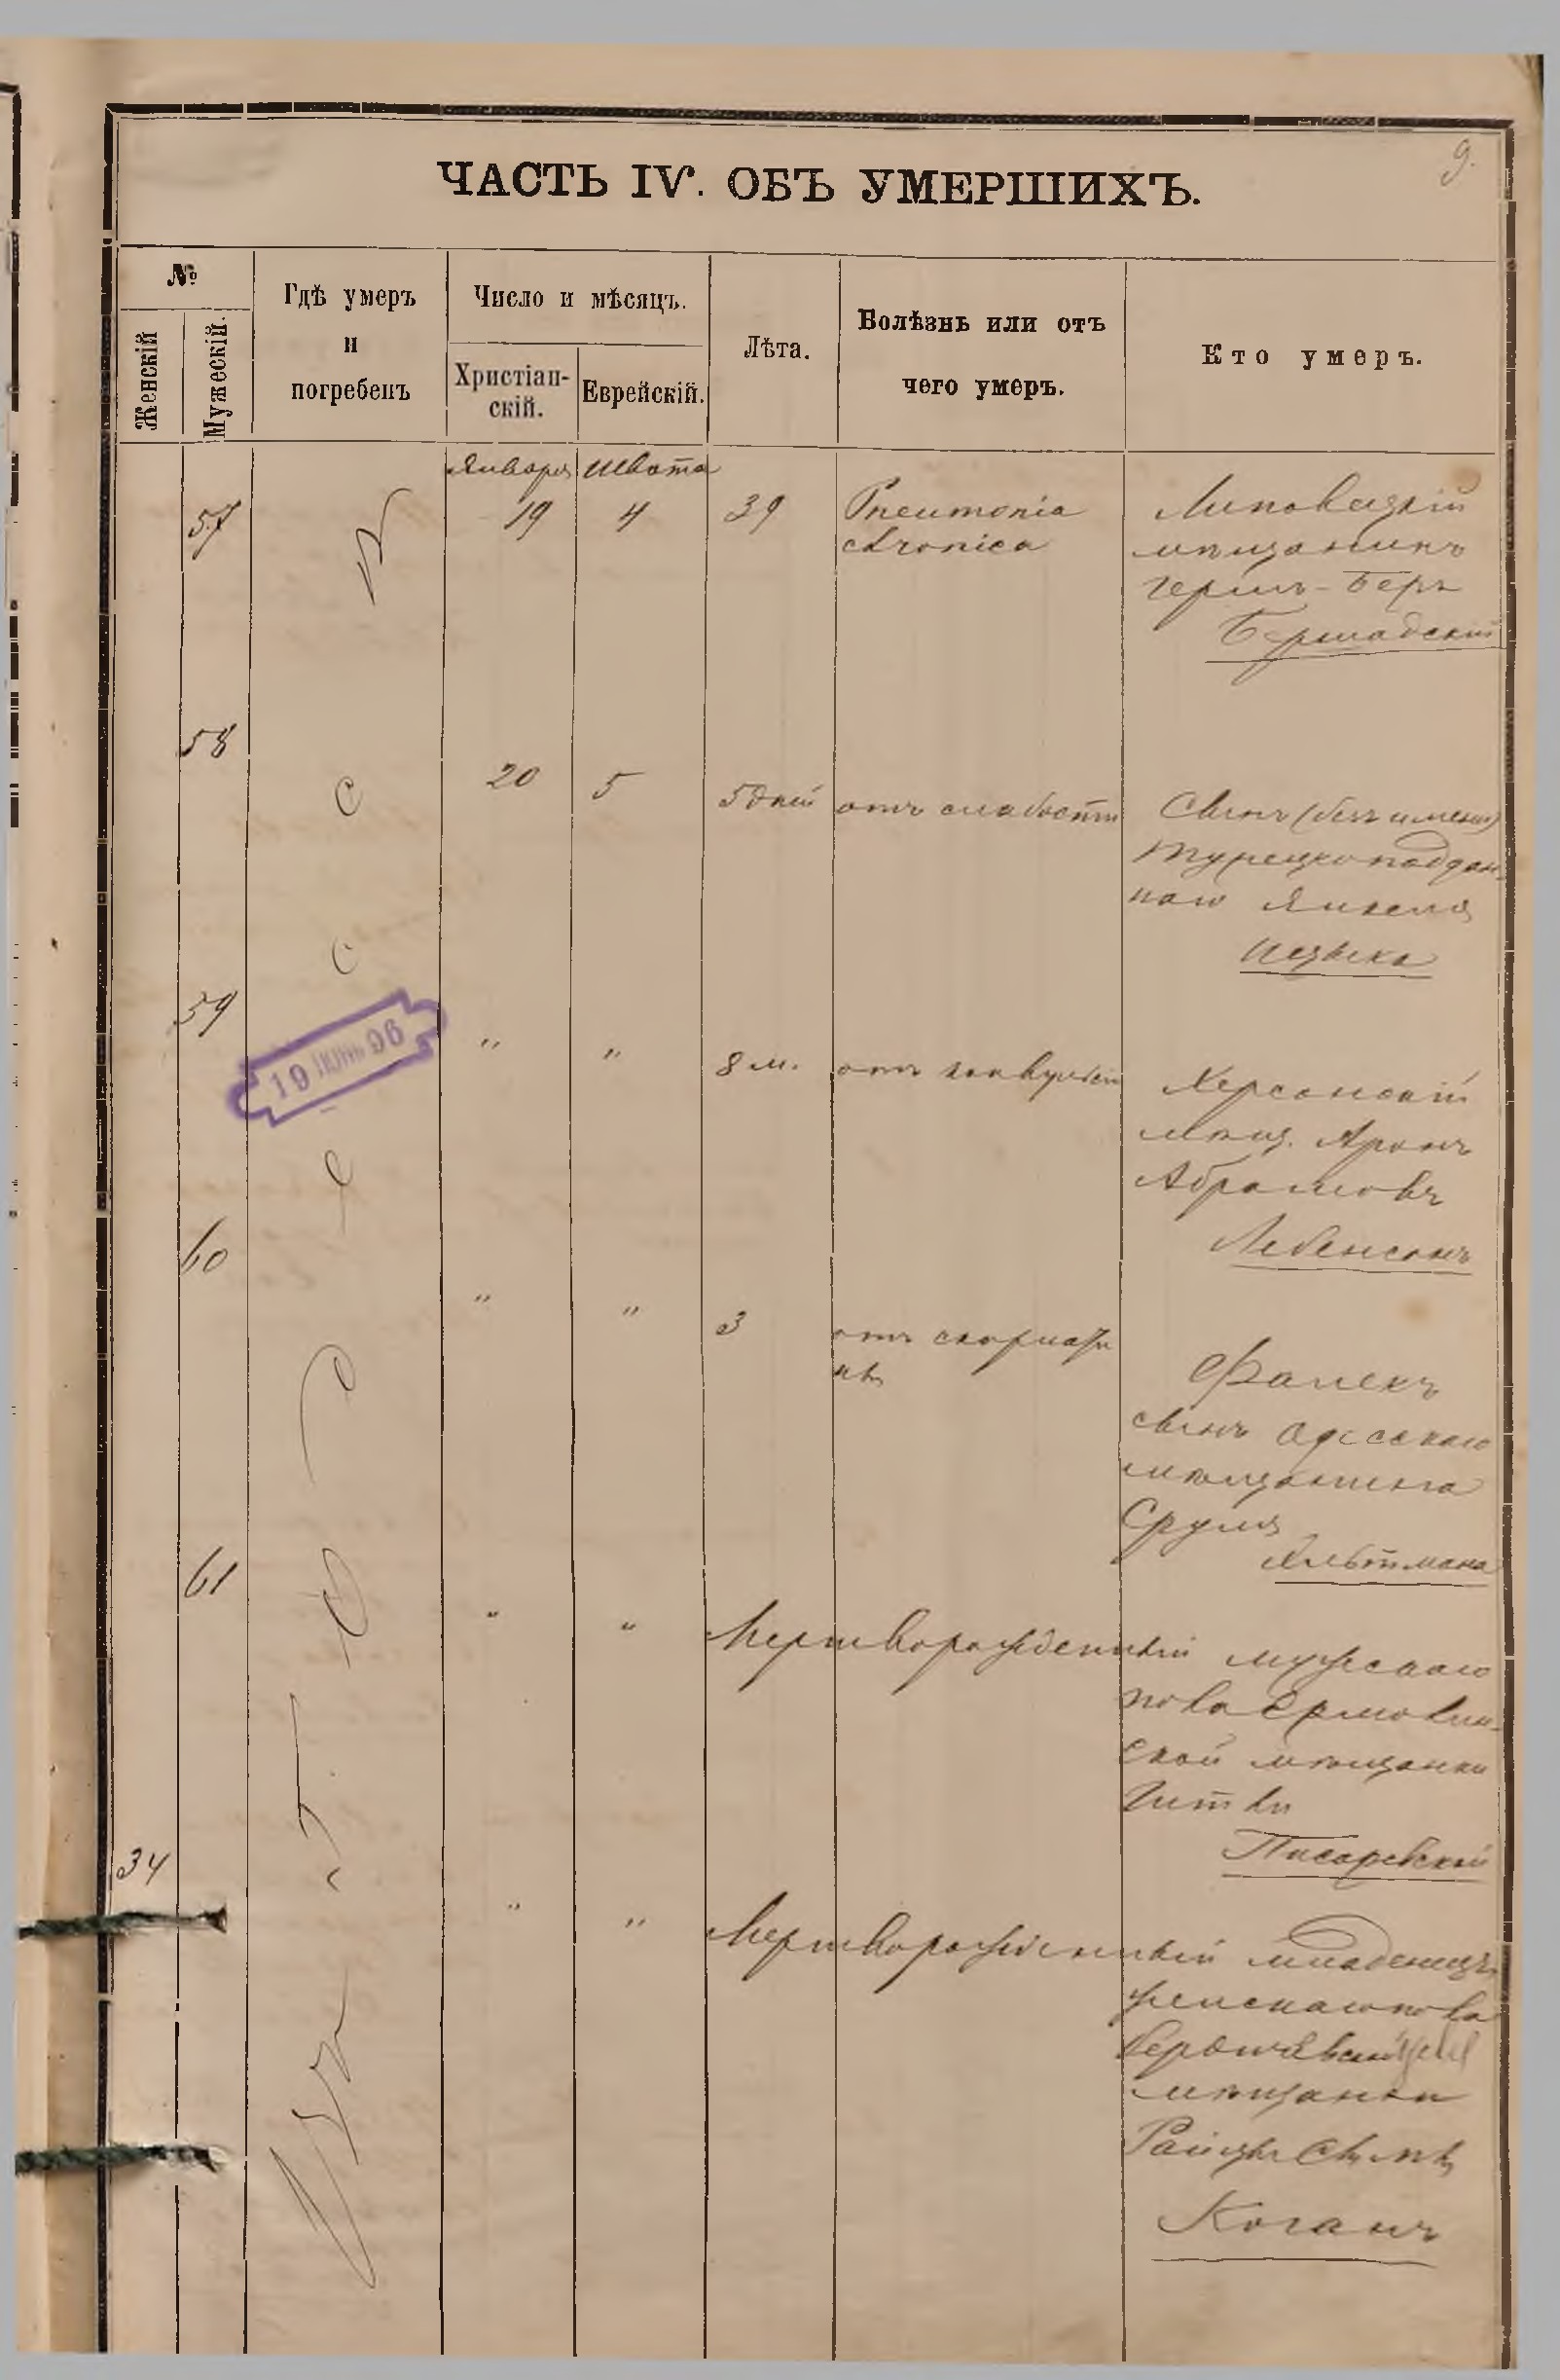 9.
ЧАСТЬ IV. ОБЪ УМЕРШИХЪ.
№
Женскій
Мужескій.
Гдѣ умеръ
и
погребенъ
Число и мѣсяцъ.
Христіан-
скій.
Еврейскій.
Лѣта.
Болѣзнь или отъ
чего умеръ.
Кто умеръ.
Января Швата
57 19 4 39 Pneumonia
chronica
Липовецкій
мѣщанинъ
Гершъ-Беръ
Бершадскій
58 20 5 5 дней отъ слабости
Сынъ (безъ имени)
турецко-поддан-
наго Янкеля
Ицыка
59 " " 8 м. отъ конвульсій
Херсонскій
мѣщ. Аронъ
Абрамовъ
Лебенсонъ
19 ІЮНЬ 96
60 " " 3 отъ скарлати
ны
Фалекъ
сынъ Одесскаго
мѣщанина
Сруля
Альтмана
61 " " Мертворожденный мужескаго
пола
ской мѣщанки
Гитли
Писаревской
34 " " Мертворожденный младенецъ
женскаго пола
Бердичевской
мѣщанки
Рейзы
Коганъ
Одесса